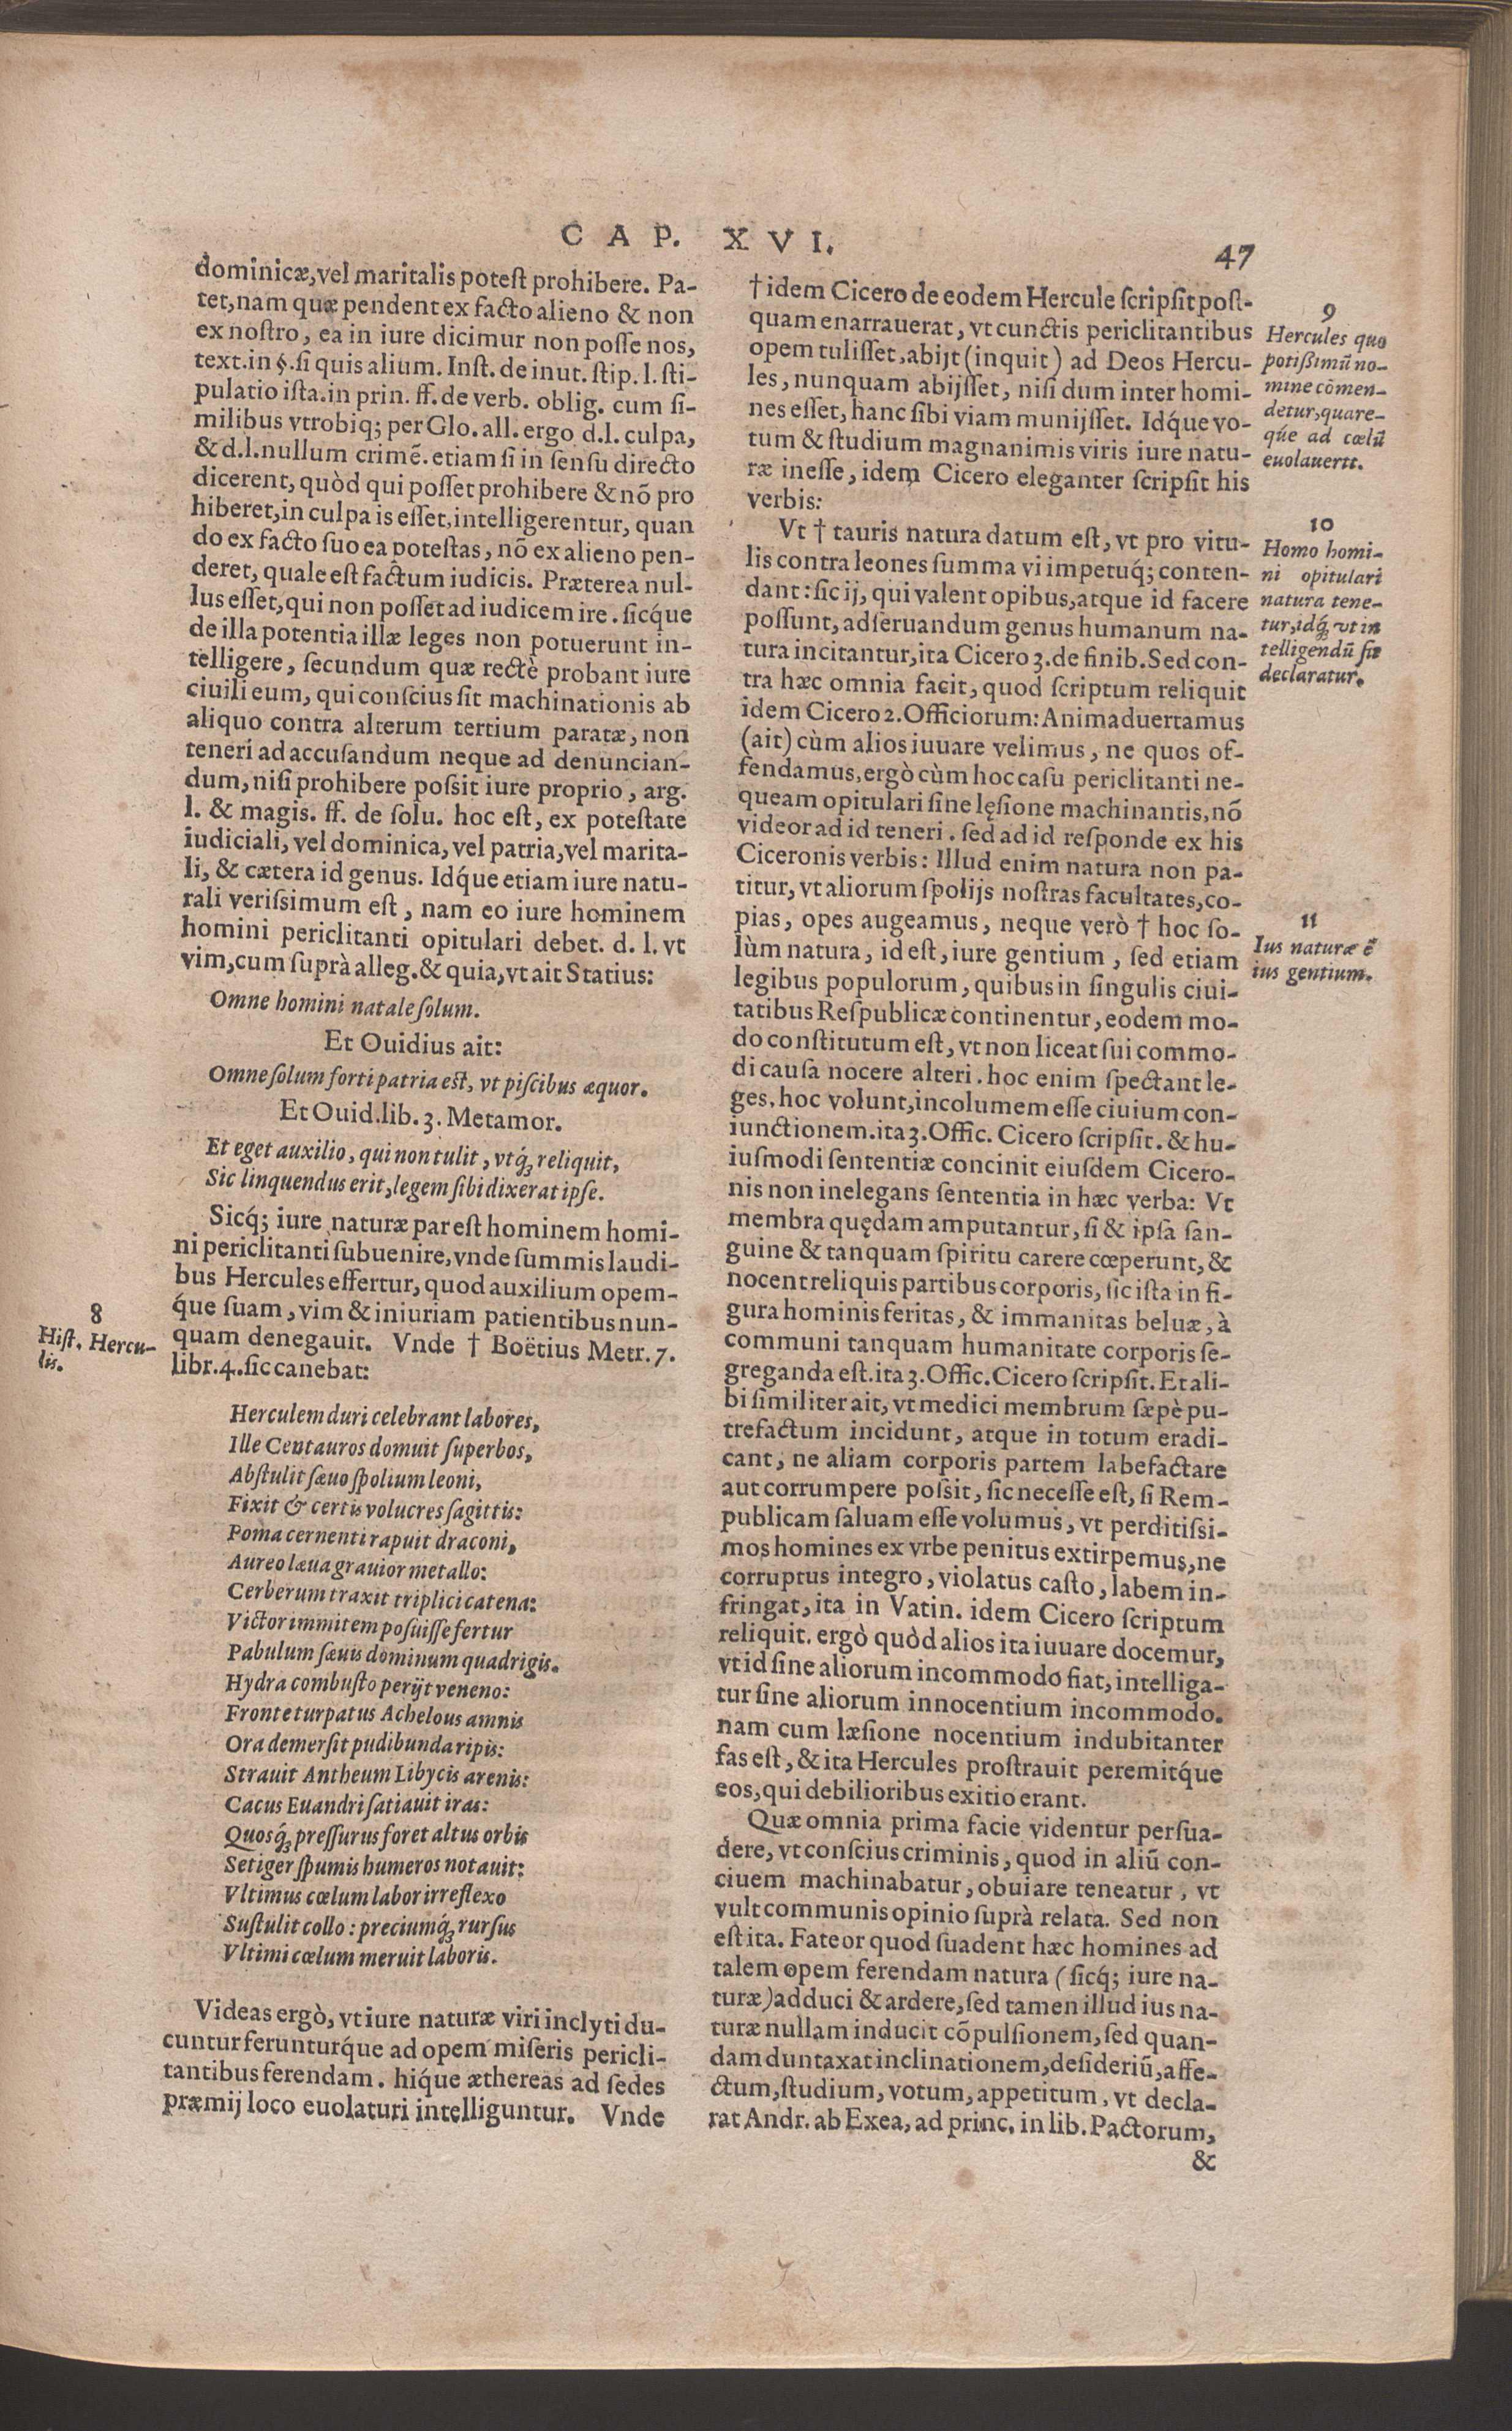 CAP. XVI. 47
dominicæ, vel maritalis potest prohibere. Pa-
tet, nam quæ pendent ex facto alieno & non
ex nostro, ea in iure dicimur non posse nos,
text. in §. si quis alium. Inst. de inut. stip. l. sti-
pulatio ista. in prin. ff. de verb. oblig. cum si-
milibus vtrobiq; per Glo. all. ergo d.l. culpa,
& d.l. nullum crimẽ. etiam si in sensu directo
dicerent, quòd qui posset prohibere & nõ pro
hiberet, in culpa is esset, intelligerentur, quan
do ex facto suo ea potestas, nõ ex alieno pen-
deret, quale est factum iudicis. Præterea nul-
lus esset, qui non posset ad iudicem ire. sicq́ue
de illa potentia illæ leges non potuerunt in-
telligere, secundum quæ rectè probant iure
ciuili eum, qui conscius sit machinationis ab
aliquo contra alterum tertium paratæ, non
teneri ad accusandum neque ad denuncian-
dum, nisi prohibere possit iure proprio, arg.
l. & magis. ff. de solu. hoc est, ex potestate
iudiciali, vel dominica, vel patria, vel marita-
li, & cætera id genus. Idq́ue etiam iure natu-
rali verissimum est, nam eo iure hominem
homini periclitanti opitulari debet. d. l. vt
vim, cum suprà alleg. & quia, vt ait Statius:
Omne homini natale solum.
Et Ouidius ait:
Omne solum forti patria est, vt piscibus æquor.
Et Ouid. lib. 3. Metamor.
Et eget auxilio, qui non tulit, vtq́; reliquit,
Sic linquendus erit, legem sibi dixerat ipse.
Sicq́; iure naturæ par est hominem homi-
ni periclitanti subuenire, vnde summis laudi-
bus Hercules effertur, quod auxilium opem-
q́ue suam, vim & iniuriam patientibus nun-
quam denegauit. Vnde † Boëtius Metr. 7.
libr. 4. sic canebat:
8
Hist. Hercu-
lis.
Herculem duri celebrant labores,
Ille Centauros domuit superbos,
Abstulit sæuo spolium leoni,
Fixit & certis volucres sagittis:
Poma cernenti rapuit draconi,
Aureo læua grauior metallo:
Cerberum traxit triplici catena:
Victor immitem posuisse fertur
Pabulum sæuis dominum quadrigis.
Hydra combusto perijt veneno:
Fronte turpatus Achelous amnis
Ora demersit pudibunda ripis:
Strauit Antheum Libycis arenis:
Cacus Euandri satiauit iras:
Quosq́; pressurus foret altus orbis
Setiger spumis humeros notauit:
Vltimus cœlum labor irreflexo
Sustulit collo: preciumq́; rursus
Vltimi cœlum meruit laboris.
Videas ergò, vt iure naturæ viri inclyti du-
cuntur ferunturq́ue ad opem miseris pericli-
tantibus ferendam. hiq́ue æthereas ad sedes
præmij loco euolaturi intelliguntur. Vnde
† idem Cicero de eodem Hercule scripsit post-
quam enarrauerat, vt cunctis periclitantibus
opem tulisset, abijt (inquit) ad Deos Hercu-
les, nunquam abijsset, nisi dum inter homi-
nes esset, hanc sibi viam munijsset. Idq́ue vo-
tum & studium magnanimis viris iure natu-
ræ inesse, idem Cicero eleganter scripsit his
verbis:
Vt † tauris natura datum est, vt pro vitu-
lis contra leones summa vi impetuq́; conten-
dant: sic ij, qui valent opibus, atque id facere
possunt, ad seruandum genus humanum na-
tura incitantur, ita Cicero 3. de finib. Sed con-
tra hæc omnia facit, quod scriptum reliquit
idem Cicero 2. Officiorum: Animaduertamus
(ait) cùm alios iuuare velimus, ne quos of-
fendamus, ergò cùm hoc casu periclitanti ne-
queam opitulari sine lęsione machinantis, nõ
videor ad id teneri. sed ad id responde ex his
Ciceronis verbis: Illud enim natura non pa-
titur, vt aliorum spolijs nostras facultates, co-
pias, opes augeamus, neque verò † hoc so-
lùm natura, id est, iure gentium, sed etiam
legibus populorum, quibus in singulis ciui-
tatibus Respublicæ continentur, eodem mo-
do constitutum est, vt non liceat sui commo-
di causa nocere alteri. hoc enim spectant le-
ges, hoc volunt, incolumem esse ciuium con-
iunctionem. ita 3. Offic. Cicero scripsit. & hu-
iusmodi sententiæ concinit eiusdem Cicero-
nis non inelegans sententia in hæc verba: Vt
membra quędam amputantur, si & ipsa san-
guine & tanquam spiritu carere cœperunt, &
nocent reliquis partibus corporis, sic ista in fi-
gura hominis feritas, & immanitas beluæ, à
communi tanquam humanitate corporis se-
greganda est. ita 3. Offic. Cicero scripsit. Et ali-
bi similiter ait, vt medici membrum sæpè pu-
trefactum incidunt, atque in totum eradi-
cant, ne aliam corporis partem labefactare
aut corrumpere possit, sic necesse est, si Rem-
publicam saluam esse volumus, vt perditissi-
mos homines ex vrbe penitus extirpemus, ne
corruptus integro, violatus casto, labem in-
fringat, ita in Vatin. idem Cicero scriptum
reliquit. ergò quòd alios ita iuuare docemur,
vt id sine aliorum incommodo fiat, intelliga-
tur sine aliorum innocentium incommodo.
nam cum læsione nocentium indubitanter
fas est, & ita Hercules prostrauit peremitq́ue
eos, qui debilioribus exitio erant.
Quæ omnia prima facie videntur persua-
dere, vt conscius criminis, quod in aliũ con-
ciuem machinabatur, obuiare teneatur, vt
vult communis opinio suprà relata. Sed non
est ita. Fateor quod suadent hæc homines ad
talem opem ferendam natura (sicq́; iure na-
turæ) adduci & ardere, sed tamen illud ius na-
turæ nullam inducit cõpulsionem, sed quan-
dam duntaxat inclinationem, desideriũ, affe-
ctum, studium, votum, appetitum, vt decla-
rat Andr. ab Exea, ad princ. in lib. Pactorum,
&
9
Hercules quo
potißimũ no-
mine cõmen-
detur, quare-
q́ue ad cœlũ
euolauerit.
10
Homo homi-
ni opitulari
natura tene-
tur, idq́; vt in
telligendũ sit
declaratur.
11
Ius naturæ ẽ
ius gentium.